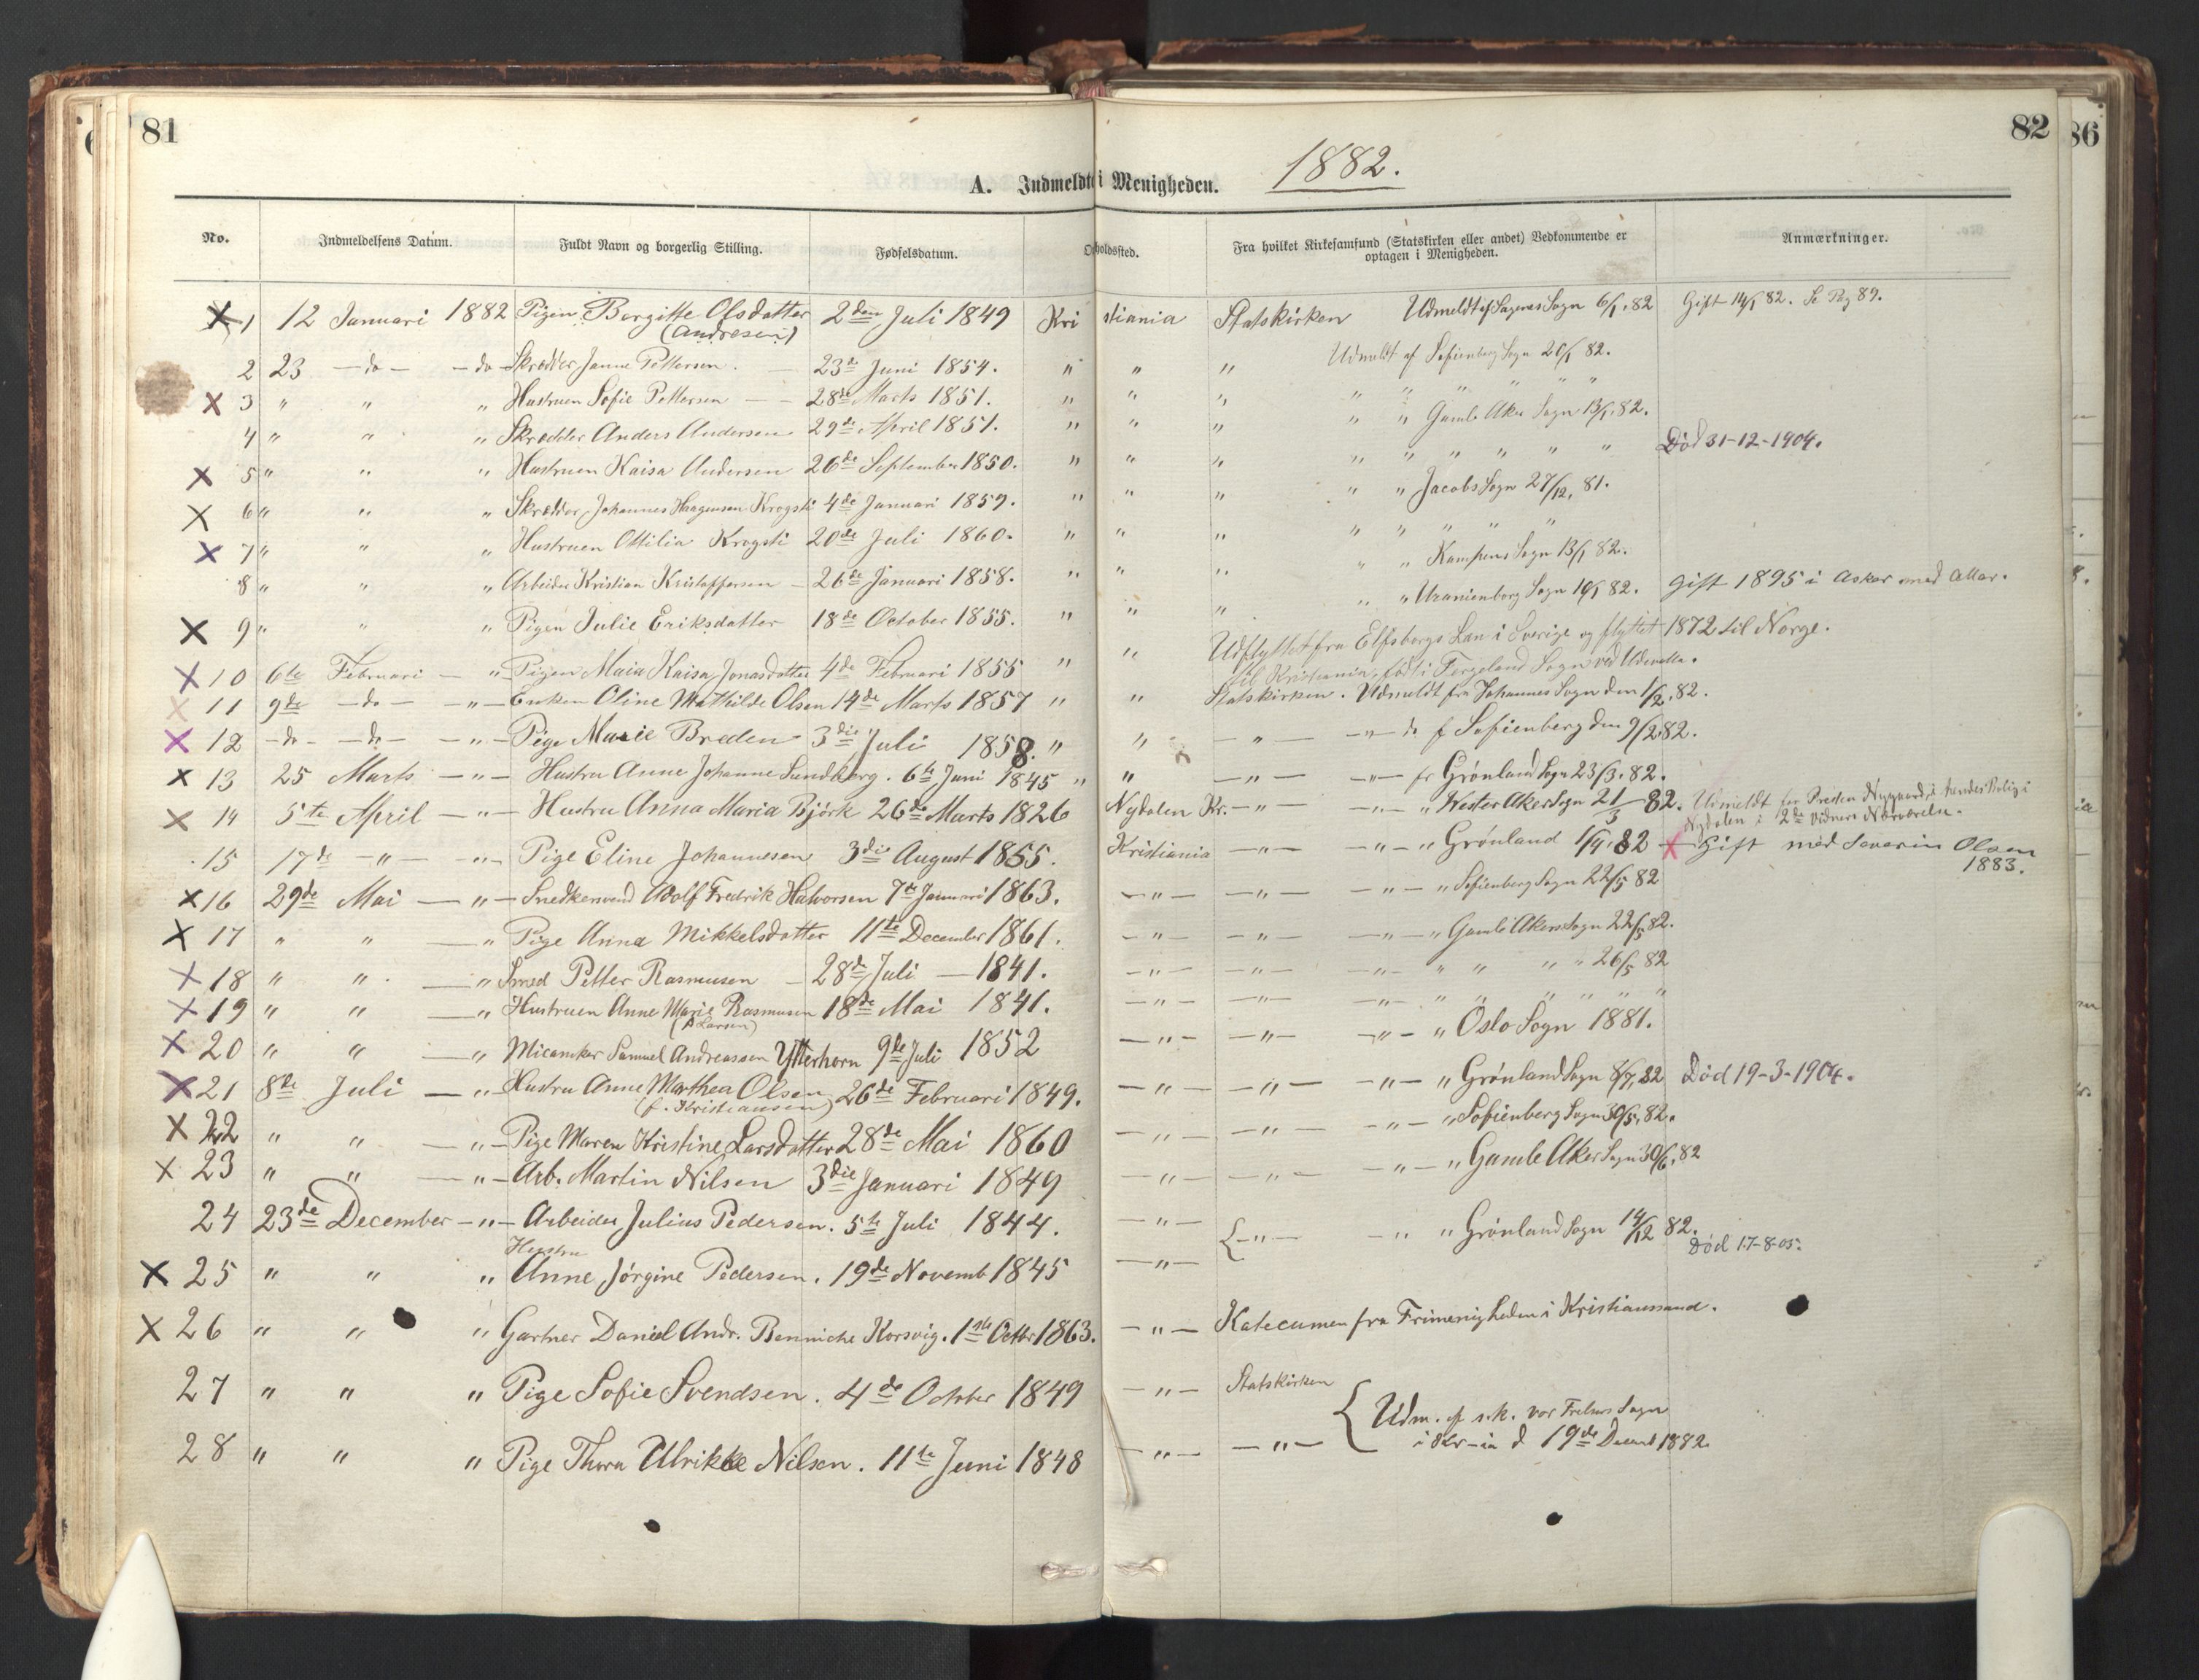 81
82
86
A. Indmeldte i Menigheden. 1882.
No. Indmeldelsens Datum. Fuldt Navn og borgerlig Stilling. Fødselsdatum. Opholdssted. Fra hvilket Kirkesamfund (Statskirken eller andet) Vedkommende er optagen i Menigheden. Anmærkninger.
X 1 12 Januari 1882 Pigen Borgitte Olsdatter 2den Juli 1849 Kristiania Statskirken Udmeldt af Sagenes Sogn 6/1, 82 Gift 14/1 82. Se Pag 89.
(Andresen)
2 23 — do — — do — Skrædder Janne Pettersen. — 23de Juni 1854. " " " Udmeldt af Sofienberg Sogn 20/1 82.
X 3 " " " Hustruen Sofie Pettersen — — 28de Marts 1851. " " " " " " " "
4 " " " Skrædder Anders Andersen 29de April 1851. " " " " " Gamle Aker Sogn 13/1, 82.
X 5 " " " Hustruen Kaisa Andersen 26de September 1850. " " " " " " " " Død 31-12-1904.
X 6 " " " Skrædder Johannes Haagensen Krogsti 4de Januari 1859. " " " " " Jacobs Sogn 27/12, 81.
X 7 " " " Hustruen Ottilia Krogsti 20de Juli 1860. " " " " " " " "
8 " " " Arbeider Kristian Kristoffersen — 26de Januari 1858. " " " " " Kampens Sogn 13/1 82.
X 9 " " " Pigen Julie Eriksdatter 18de October 1855. " " " " " Uranienborg Sogn 19/1 82. Gift 1895 i Asker med Allar.
X 10 6te Februari — " — Pigen Maia Kaisa Jonasdatter 4de Februari 1855 " " Udflyttet fra Elfsborgs Län i Sverige og flyttet 1872 til Norge.
til Kristiania, født i Torgeland Sogn ved Udevalla.
X 11 9de — do — — " — Enken Oline Mathilde Olsen 14de Marts 1857 " " Statskirken. Udmeldt fra Johannes Sogn den 1/2, 82.
X 12 — do — — do — — " — Pige Marie Breden 3die Juli 1858. " " — " — — " — do f Sofienberg den 9/2 82.
X 13 25 Marts — " — Hustru Anne Johanne Sundberg. 6te Juni 1845 " " — " — — " — fr Grønland Sogn 23/3, 82.
X 14 5te April — " — Hustru Anna Maria Björk 26de Marts 1826 Nydalen Kr. — " — — " — " Vester Aker Sogn 21/3 82. Udmeldt for Presten Nygaard, i hendes Bolig i
Nydalen i 2de Vidners Nærværelse.
15 17de — " — — " — Pige Eline Johannesen 3die August 1855. Kristiania — " — — " — " Grønland 1/4, 82 X Gift med Severin Olsen
1883.
X 16 29de Mai — " — Snedkersvend Adolf Fredrik Halvorsen 7de Januari 1863. — " — — " — — " — " Sofienberg Sogn 22/5 82
X 17 " " — " Pige Anna Mikkelsdatter 11te December 1861. — " — — " — — " — " Gamle Akers Sogn 22/5 82.
X 18 " " — " Smed Petter Rasmusen — 28de Juli — 1841. — " — — " — — " — " " " " 26/5 82
X 19 " " — " Hustruen Anne Marie Rasmusen 18de Mai 1841. — " — — " — — " — " " " " " "
(A Larsen)
X 20 " " — " Micaniker Samuel Andreassen Ytterhorn 9de Juli 1852 — " — — " — — " — " Oslo Sogn 1881.
X 21 8de Juli — " — Hustru Anne Marthea Olsen 26de Februari 1849. — " — — " — — " — " Grønland Sogn 8/7, 82 Død 19-3-1904.
(f. Kristiansen)
X 22 " " — " — Pige Maren Kristine Larsdatter 28de Mai 1860 — " — — " — — " — " Sofienberg Sogn 30/5, 82.
X 23 " " — " — Arb. Martin Nilsen 3die Januari 1849 — " — — " — — " — " Gamle Aker Sogn 30/6, 82
24 23de December — " — Arbeider Julius Pedersen. 5te Juli 1844. — " — { — " — — " " Grønland Sogn 14/12 82.
Hustru
X 25 " " " Anne Jørgine Pedersen. 19de Novemb 1845 — " — Død 17-8-05.
X 26 " " " Gartner Daniel Andr. Benniche Korsvig. 1ste Octbr 1863. — " — Katecumen fra Frimenigheden i Kristianssand.
27 " " " Pige Sofie Svendsen. 4de October 1849 — " — Statskirken
{ Udm. af s.k. vor Frelsers Sogn
28 " " " Pige Thora Ulrikke Nilsen. 11te Juni 1848 — " — — " — i Kr-ia d 19de Decemb 1882.